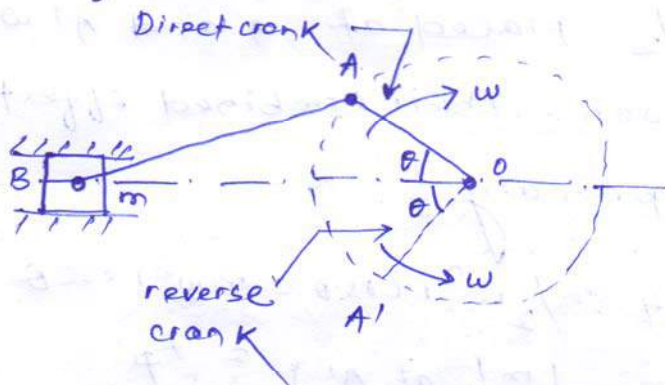 Direct crank
A
ω
B
m
θ
O
θ
ω
reverse
crank
A'